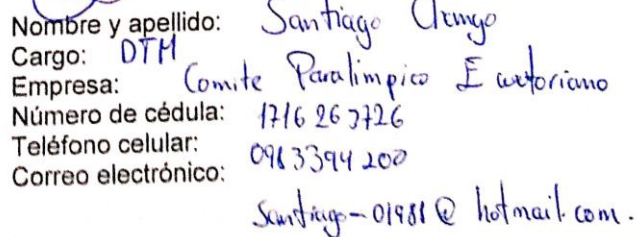 Nombre y apellido: Santiago
Cargo: DTM
Empresa: Comite Paralimpico Ecuatoriano
Número de cédula: 1716263726
Teléfono celular: 0983394200
Correo electrónico:
Santiago-01981@hotmail.com.